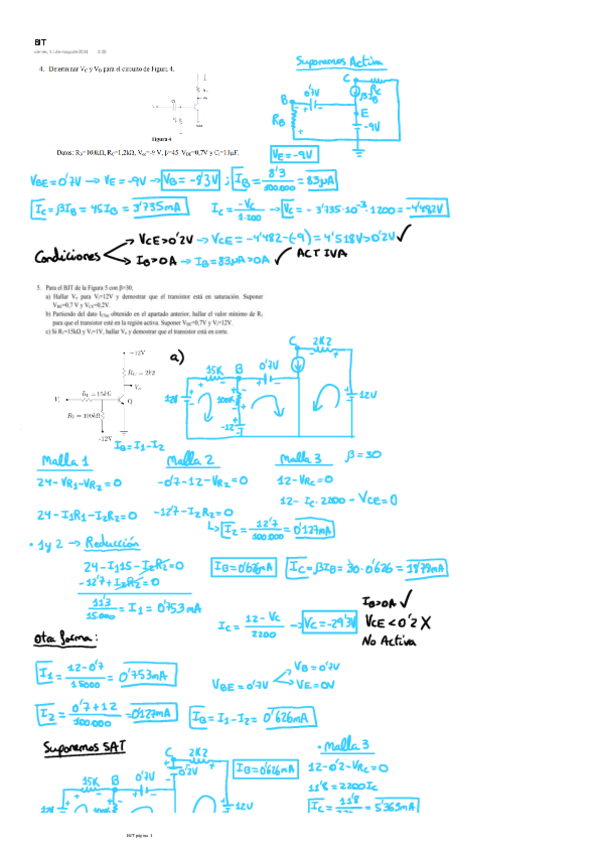 BJT
4. Determinar VC y VB para el circuito de Figura 4.
Suponemos Activa
C
B
0'7V
RC
βIB
RB
E
-9V
Figura 4
VE = -9V
VBE = 0'7V → VE = -9V → VB = -8'3V ; IB = 8'3 / 100.000 = 83μA
IC = βIB = 45IB = 3'735mA
IC = -VC / 1.200 → VC = -3'735·10⁻³·1200 = -4'482V
Condiciones
VCE > 0'2V → VCE = -4'482-(-9) = 4'518V > 0'2V ✓
IB > 0A → IB = 83μA > 0A ✓ ACTIVA
5. Para el BJT de la Figura 5 con β=30,
a) Hallar Vo para Vi=12V y demostrar que el transistor está en saturación. Suponer
VBE=0,7 V y VCE=0,2V.
para que el transistor esté en la región activa. Suponer VBE=0,7V y Vi=12V.
c) Si R1=15kΩ y Vi=1V, hallar Vo y demostrar que el transistor está en corte.
+12V
RC = 2kΩ
Vo
R1 = 15kΩ
Vi
Q
R2 = 100kΩ
-12V
a)
C
2K2
15K
B
0'7V
12V
100K
-12
12V
IB = I1 - I2
Malla 1
24-VR1-VR2=0
24-I1R1-I2R2=0
Malla 2
-0'7-12-VR2=0
-12'7-I2R2=0
↳ I2 = 12'7 / 100.000 = 0'127mA
Malla 3
β = 30
12-VRC=0
12-IC·2200-VCE=0
• 1y 2 → Reducción
24-I1·15-I2R2=0
-12'7+I2R2=0
11'3 / 15.000 = I1 = 0'753mA
IB=0'626mA
IC=βIB=30·0'626=18'79mA
IC = 12-VC / 2200 → VC=-29'3V
IB>0A ✓
VCE<0'2 X
No Activa
Otra forma:
I1 = 12-0'7 / 15000 = 0'753mA
VBE = 0'7V
VB=0'7V
VE=0V
I2 = 0'7+12 / 100.000 = 0'127mA
IB=I1-I2= 0'626mA
Suponemos SAT
C
2K2
0'2V
15K
B
0'7V
12V
12V
IB=0'626mA
• Malla 3
12-0'2-VRC=0
11'8=2200IC
IC = 11'8 / 2200 = 5'363mA
BJT página 1